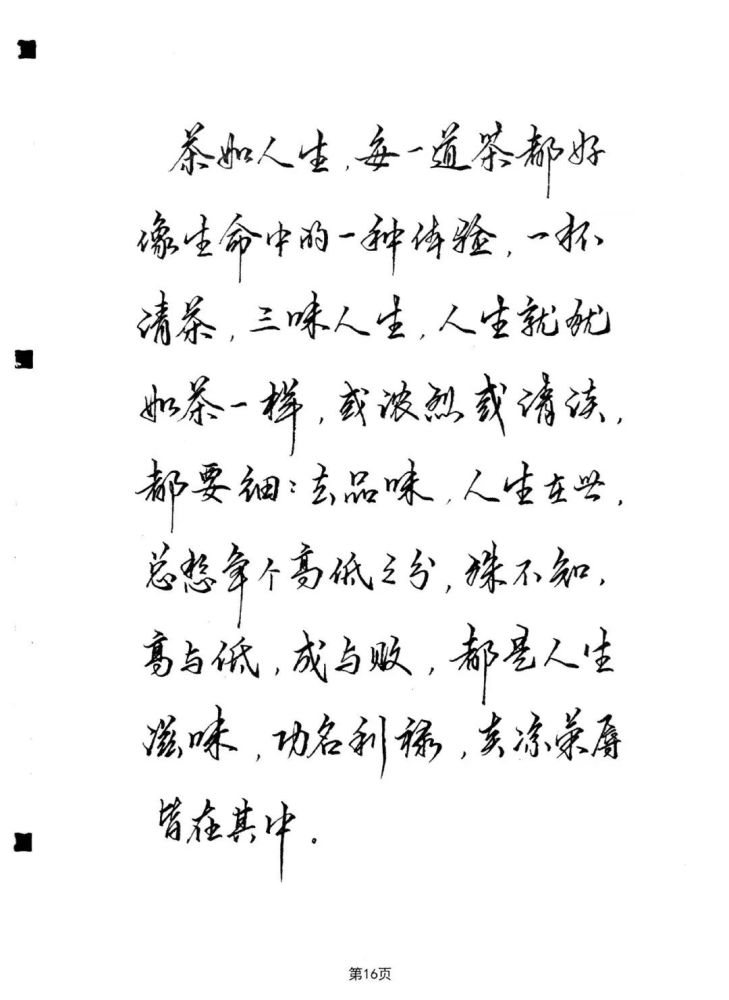 茶如人生，每一道茶都好
像生命中的一种体验，一杯
清茶，三味人生，人生就犹
如茶一样，或浓烈或清淡，
都要细:去品味，人生在世，
总想争个高低之分，殊不知，
高与低，成与败，都是人生
滋味，功名利禄，炎凉荣辱
皆在其中。
第16页